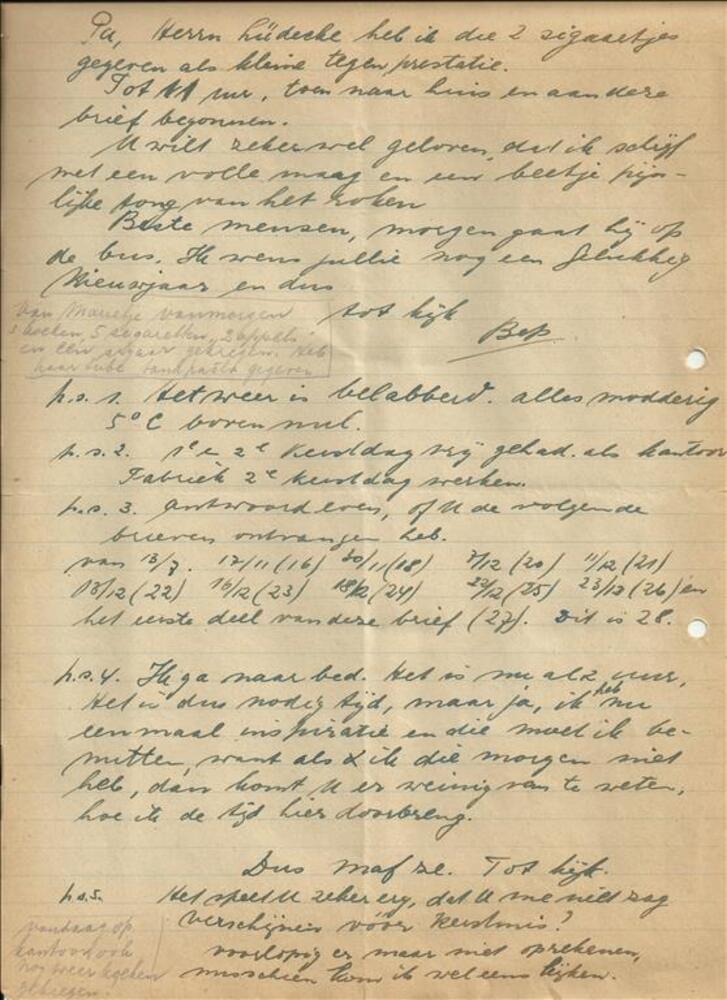 Pa, Herrn Lüdecke heb ik die 2 sigaartjes
gegeven als kleine tegenprestatie.
Tot 11 uur, toen naar huis en aan deze
brief begonnen.
U wilt zeker wel geloven, dat ik schrijf
met een volle maag en een beetje pijn-
lijke tong van het roken
Beste mensen, morgen gaat hij op
de bus. Ik wens jullie nog een Gelukkig
Nieuwjaar en dus
tot kijk
Bep
Van Marietje vanmorgen
3 koeken, 5 sigaretten, 2 appels
en één sigaar gekregen. Heb
haar tube tandpasta gegeven
p.s. 1. Het weer is belabberd. alles modderig
5° C boven nul.
p.s. 2. 1e en 2e Kerstdag vrij gehad. als kantoor
Fabriek 2e kerstdag werken.
p.s. 3. Antwoord even, of U de volgende
brieven ontvangen heb.
van 13/7. 17/11 (16) 30/11 (18) 7/12 (20) 11/12 (21)
13/12 (22) 16/12 (23) 18/12 (24) 22/12 (25) 23/12 (26) en
het eerste deel van deze brief (27). Dit is 28.
p.s. 4. Ik ga naar bed. Het is nu al 2 uur,
Het is dus nodig tijd, maar ja, ik heb nu
eenmaal inspiratie en die moet ik be-
nutten, want als ik die morgen niet
heb, dan komt U er weinig van te weten,
hoe ik de tijd hier doorbreng.
Dus maf ze. Tot kijk.
p.s. 5. Het speet U zeker erg, dat U me niet zag
verschijnen vóór Kerstmis?
voorlopig er maar niet op rekenen,
misschien kom ik wel eens kijken.
vandaag op
kantoor ook
nog weer
gekregen.